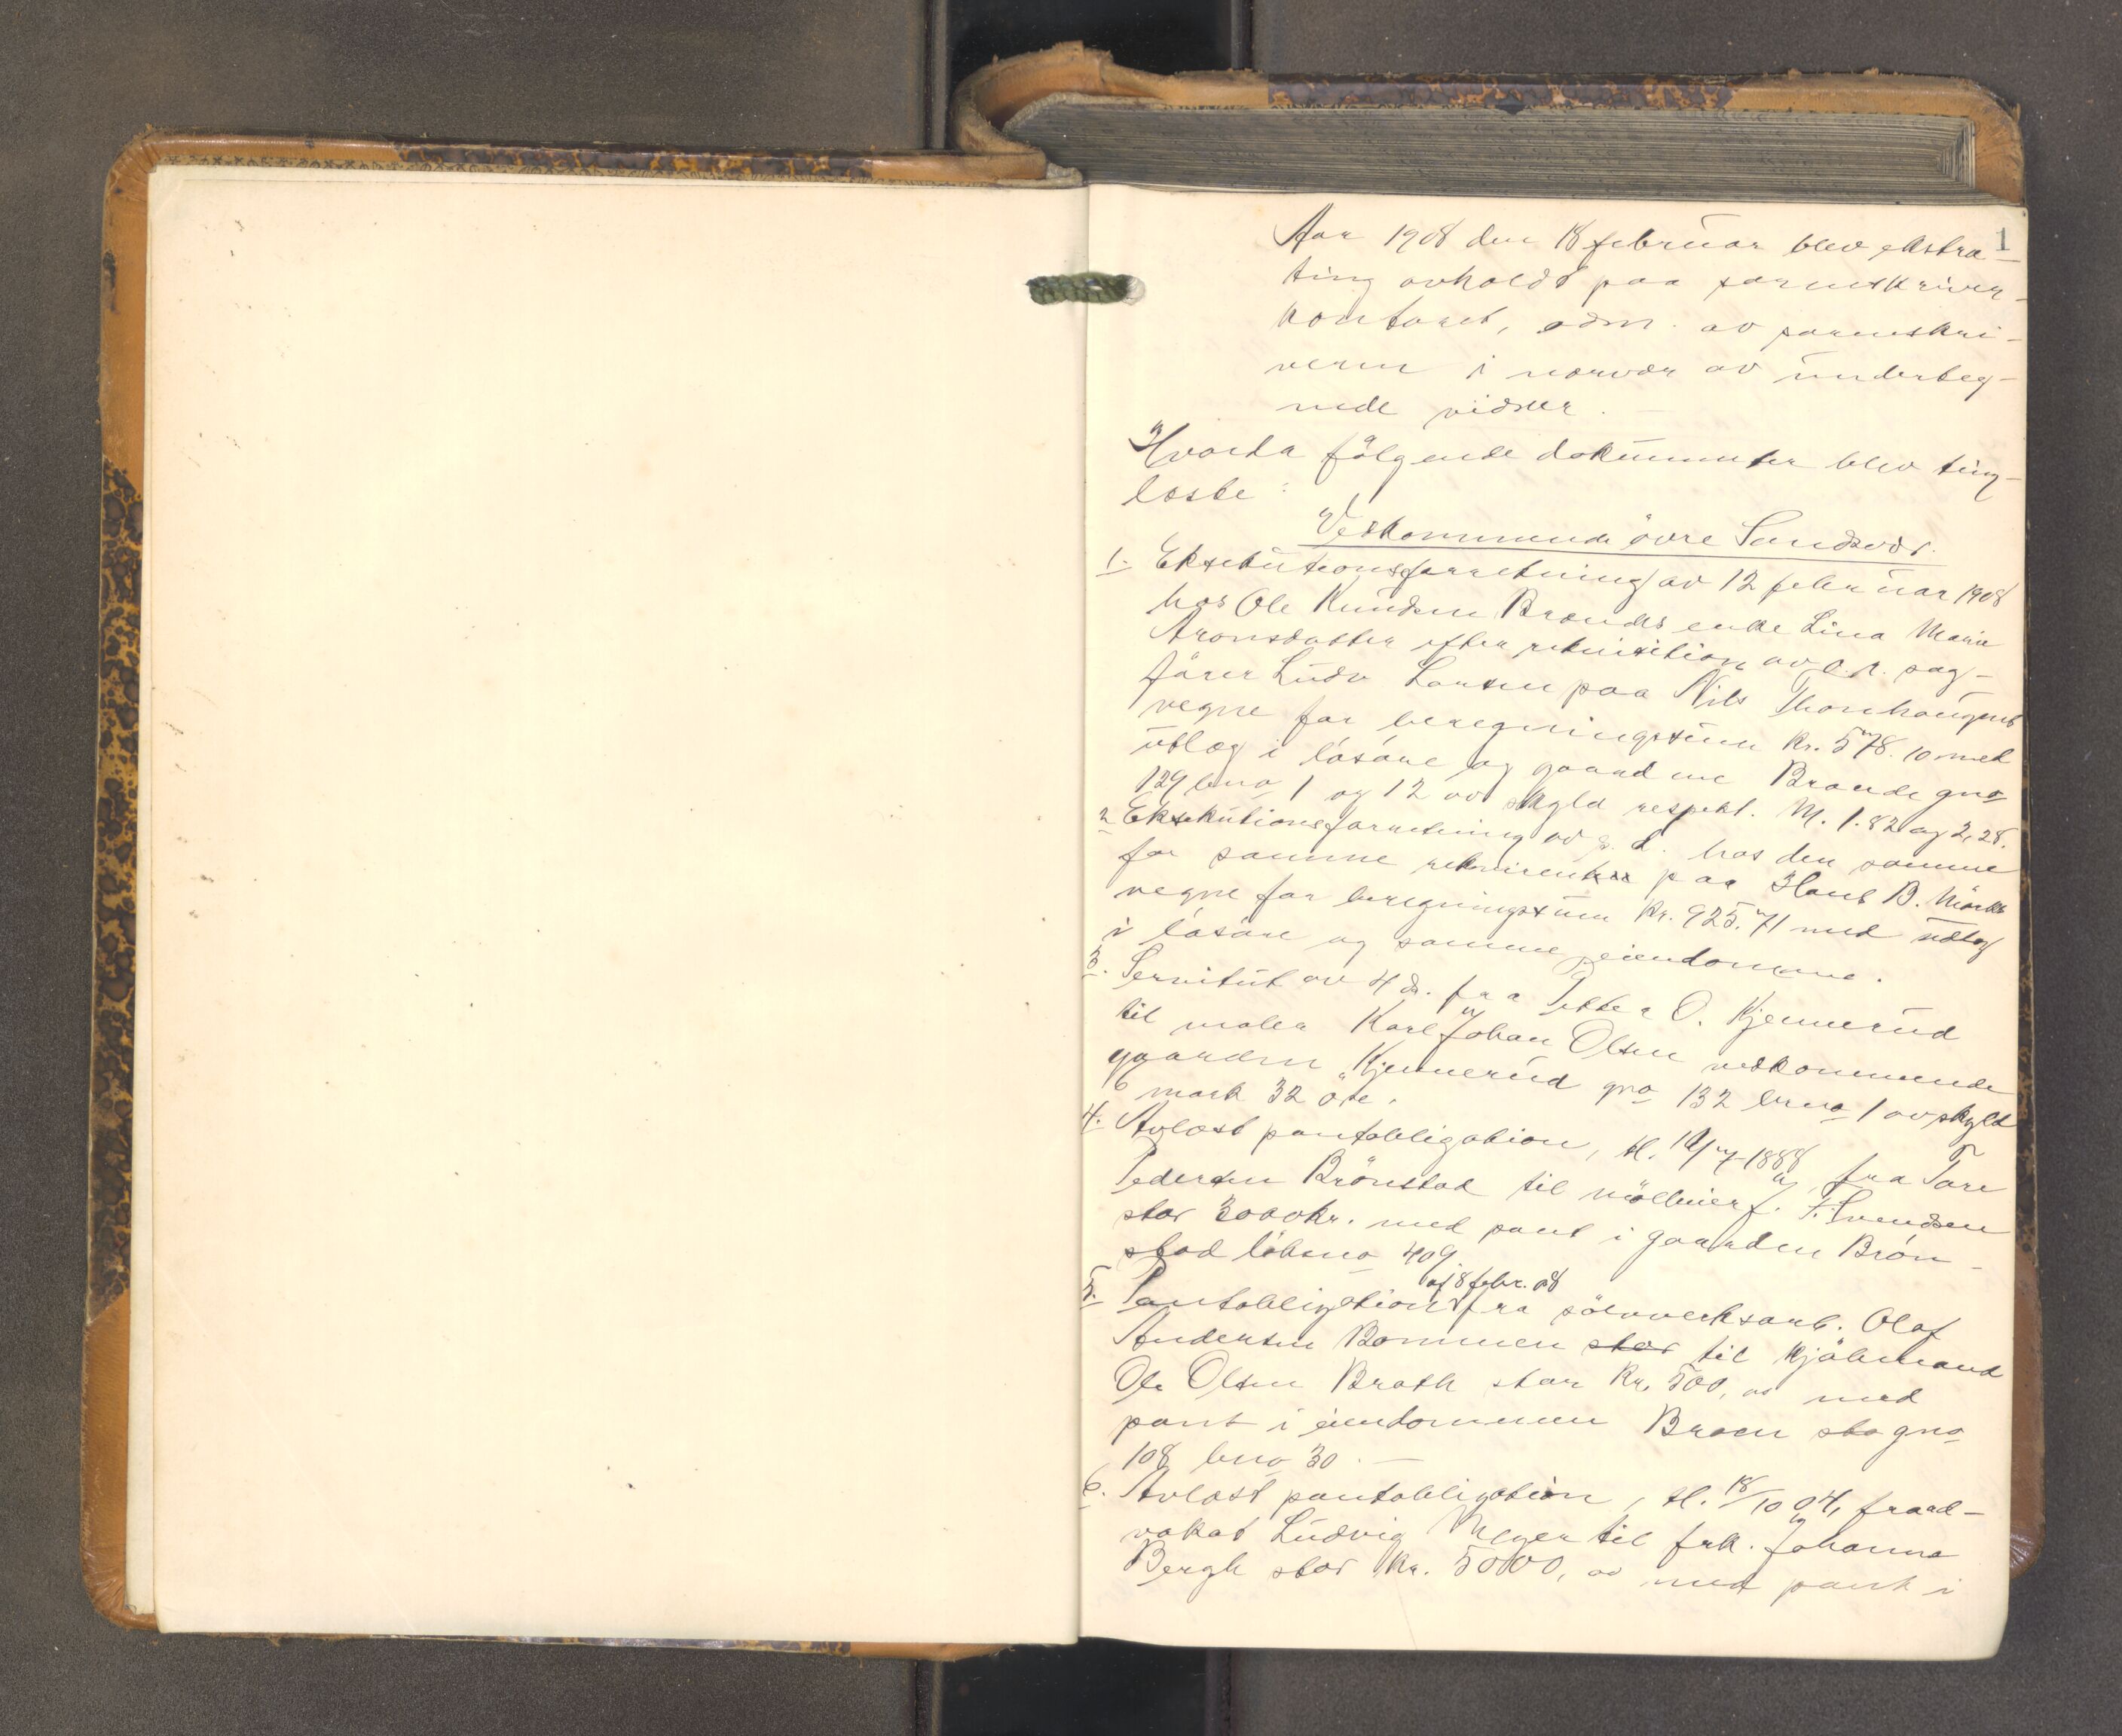 1
Aar 1908 den 18 februar blev ekstra-
ting avholdt paa sorenskriver-
kontoret, adm. av sorenskri-
veren i nærvær av underteg-
nede vidner.
Hvorda følgende dokumenter blev ting-
læste:
Vedkommende øvre Sandsvær.
1. Eksekutionsforretning av 12 februar 1908
hos Ole Knudsen Brændes enke Lina Marie
Aronsdatter efter rekvisition av o.r. sag-
fører Ludv Larsen paa Nils Thorhaugens
vegne for beregningssum kr. 578.10 med
utlæg i løsøre og gaardene Brænde gno
129 bno 1 og 12 av skyld respekt. M. 1.82 og 2,28.
2 Eksekutionsforretning av s. d. hos den samme
for samme rekvirent paa Hans B. Mörks
vegne for beregningssum kr. 925.71 med udlæg
i løsøre og samme eiendomme.
3. Servitut av 4 ds. fra Petter O. Kjennerud
til maler Karl Johan Olsen vedkommende
gaarden Kjennerud gno 132 bno 1 av skyld
6 mark 32 øre.
4. Avlæst pantobligation, tl. 1888, fra Tore
Pedersen Brönstad til mölleier J. F. Svendsen
stor 3000kr. med pant i gaarden Brön-
stad löbeno 409.
5. Pantobligation af 8 febr. 08 fra sölvverksarb. Olaf
Andersen Bommen stor til kjöbmand
Ole Olsen Brath stor kr. 500, oo med
pant i eiendommen Braen sto gno
108 bno 30. —
6. Avlæst pantobligation, tl. 18/10 04, fra ad-
vokat Ludvig Meyer til frk. Johanna
Bergh stor kr. 5000, oo med pant i